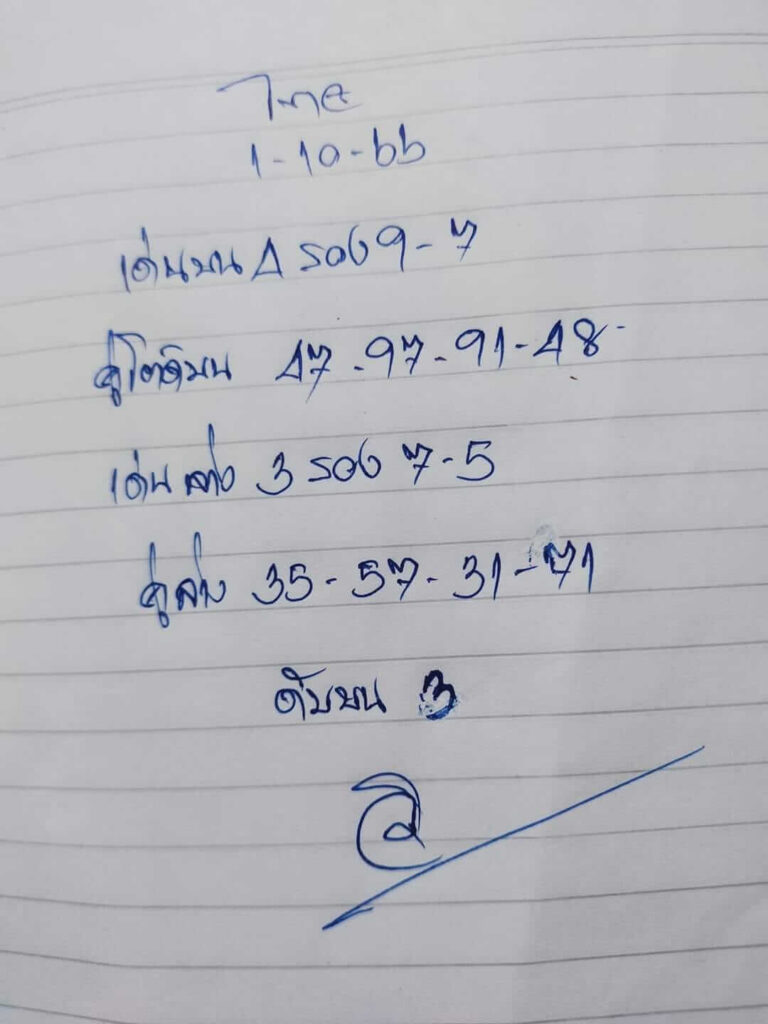 ไทย
1-10-66
เด่นบน 4 รอง 9-7
คู่โต๊ดบน 47-97-91-48-
เด่นล่าง 3 รอง 7-5
คู่ล่าง 35-57-31-71
ดับบน 3